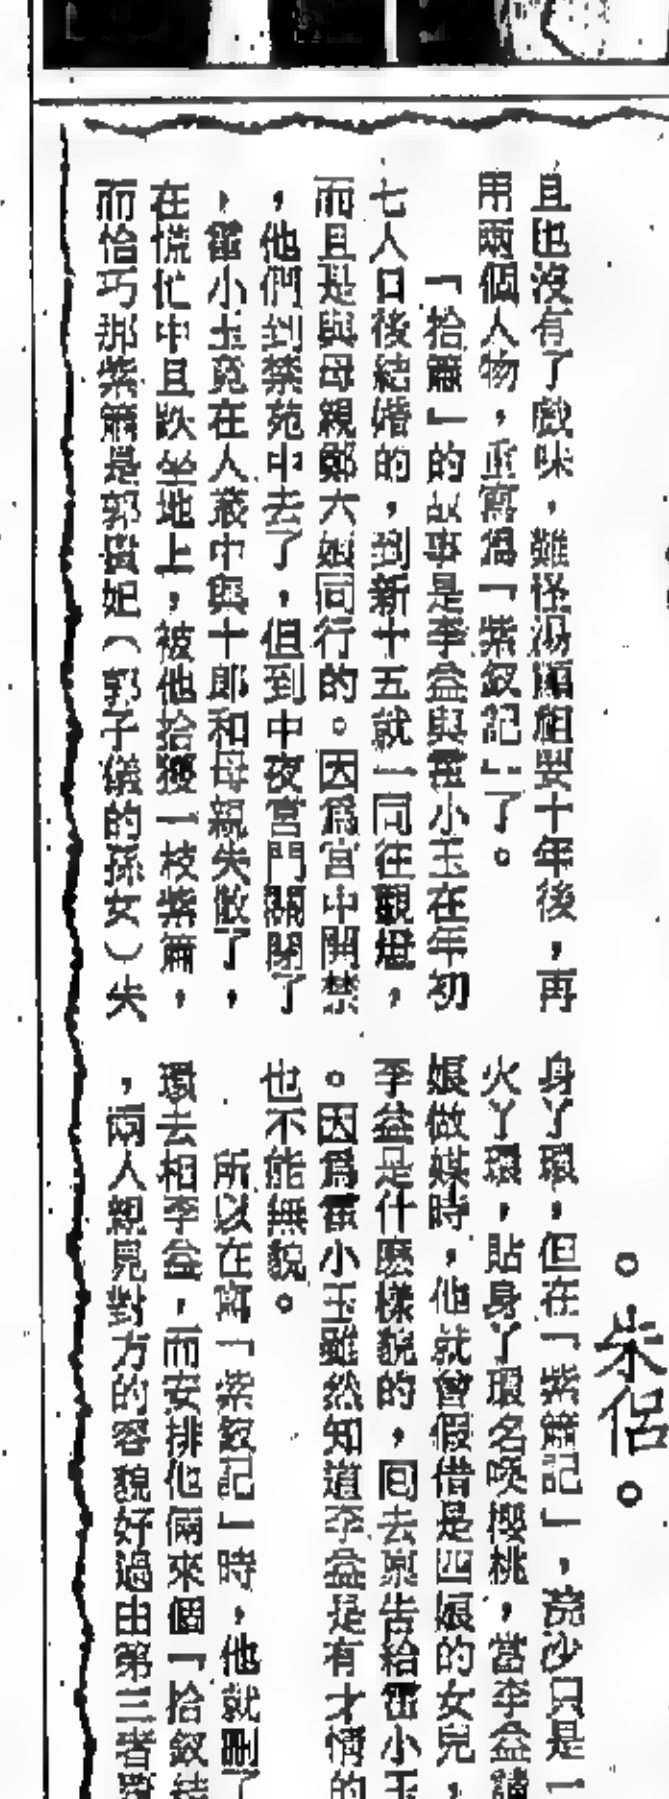 且也沒有了戲味，難怪湯顯祖要十年後，再
用兩個人物，重寫過「紫釵記」了。
「拾簫」的故事是李益與霍小玉在年初
七人日後結婚的，到新十五就一同往觀燈，
而且是與母親鄭六娘同行的。因爲宮中開禁
，他們到禁苑中去了，但到中夜宮門關閉了
，霍小玉竟在人叢中與十郎和母親失散了，
在慌忙中且跌坐地上，被他拾獲一枝紫簫，
而恰巧那紫簫是郭貴妃（郭子儀的孫女）失
。朱侶。
身丫環，但在「紫簫記」，浣沙只是一
火丫環，貼身丫環名喚櫻桃，當李益請
娘做媒時，他就曾假借是四娘的女兒，
李益是什麽樣貌的，回去稟告給霍小玉
。因爲霍小玉雖然知道李益是有才情的
也不能無貌。
所以在寫「紫釵記」時，他就刪了
環去相李益，而安排他倆來個「拾釵結
，兩人親見對方的容貌好過由第三者